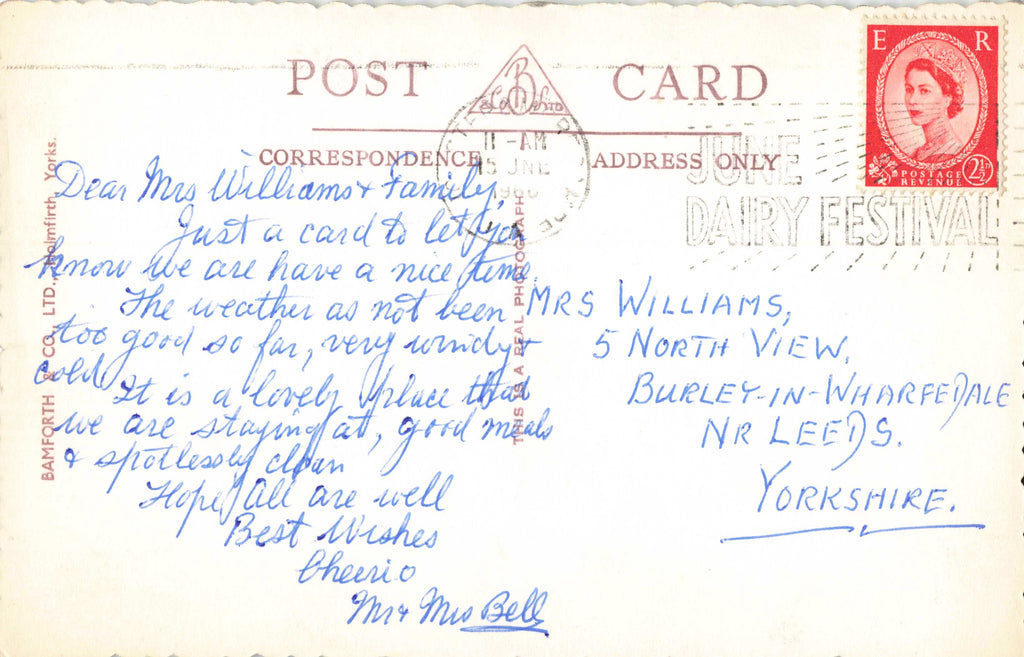 POST CARD
B
& Co LTD
CORRESPONDENCE
ADDRESS ONLY
E R
POSTAGE
REVENUE
2½
11 - AM
15 JNE
JUNE
DAIRY FESTIVAL
BAMFORTH & CO., LTD., Holmfirth, Yorks.
THIS IS A REAL PHOTOGRAPH
Dear Mrs Williams + Family,
Just a card to let you
know we are have a nice time.
The weather as not been
too good so far, very windy +
cold.
It is a lovely place that
we are staying at, good meals
& spotlessly clean
Hope All are well
Best Wishes
Cheerio
Mr + Mrs Bell
MRS WILLIAMS,
5 NORTH VIEW,
BURLEY-IN-WHARFEDALE
NR LEEDS.
YORKSHIRE.